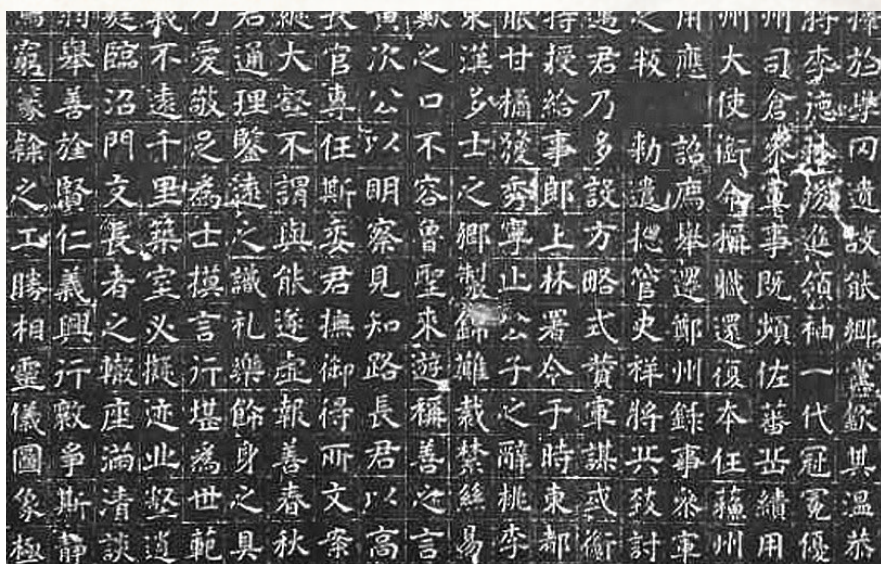 於學遺設能鄉黨其溫恭
將李德進領袖一代冠冕優
州司倉叅軍事既頻佐蕃岳績用
州大使銜命攝職還復本任蘓州
用應詔庿舉選鄭州錄事叅軍
之叛勑遣把管史祥將兵致討
君乃多設方略式賛軍謀或衝
持授給事郎上林署令于時東都
服甘橘發秀寧止公子之辭桃李
東漢多士之鄉製錦難裁棼絲易
歎之口不容魯聖來遊稱善之言
黃次公以明察見知路長君以高
長官專任斯委君撫御得所文案
縱大壑不謂與能遂虛報善春秋
君通理鑒遠之識礼樂飾身之具
乃愛敬是為士摸言行堪為世範
義不遠千里築室必擬迹此壑逍
庭臨沼門文長者之轍座滿清談
舉善於賢仁義興行敦爭斯靜
窮篆隸之工勝相靈儀圖象極